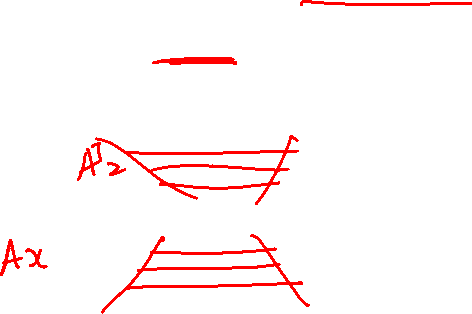 A³2
Ax